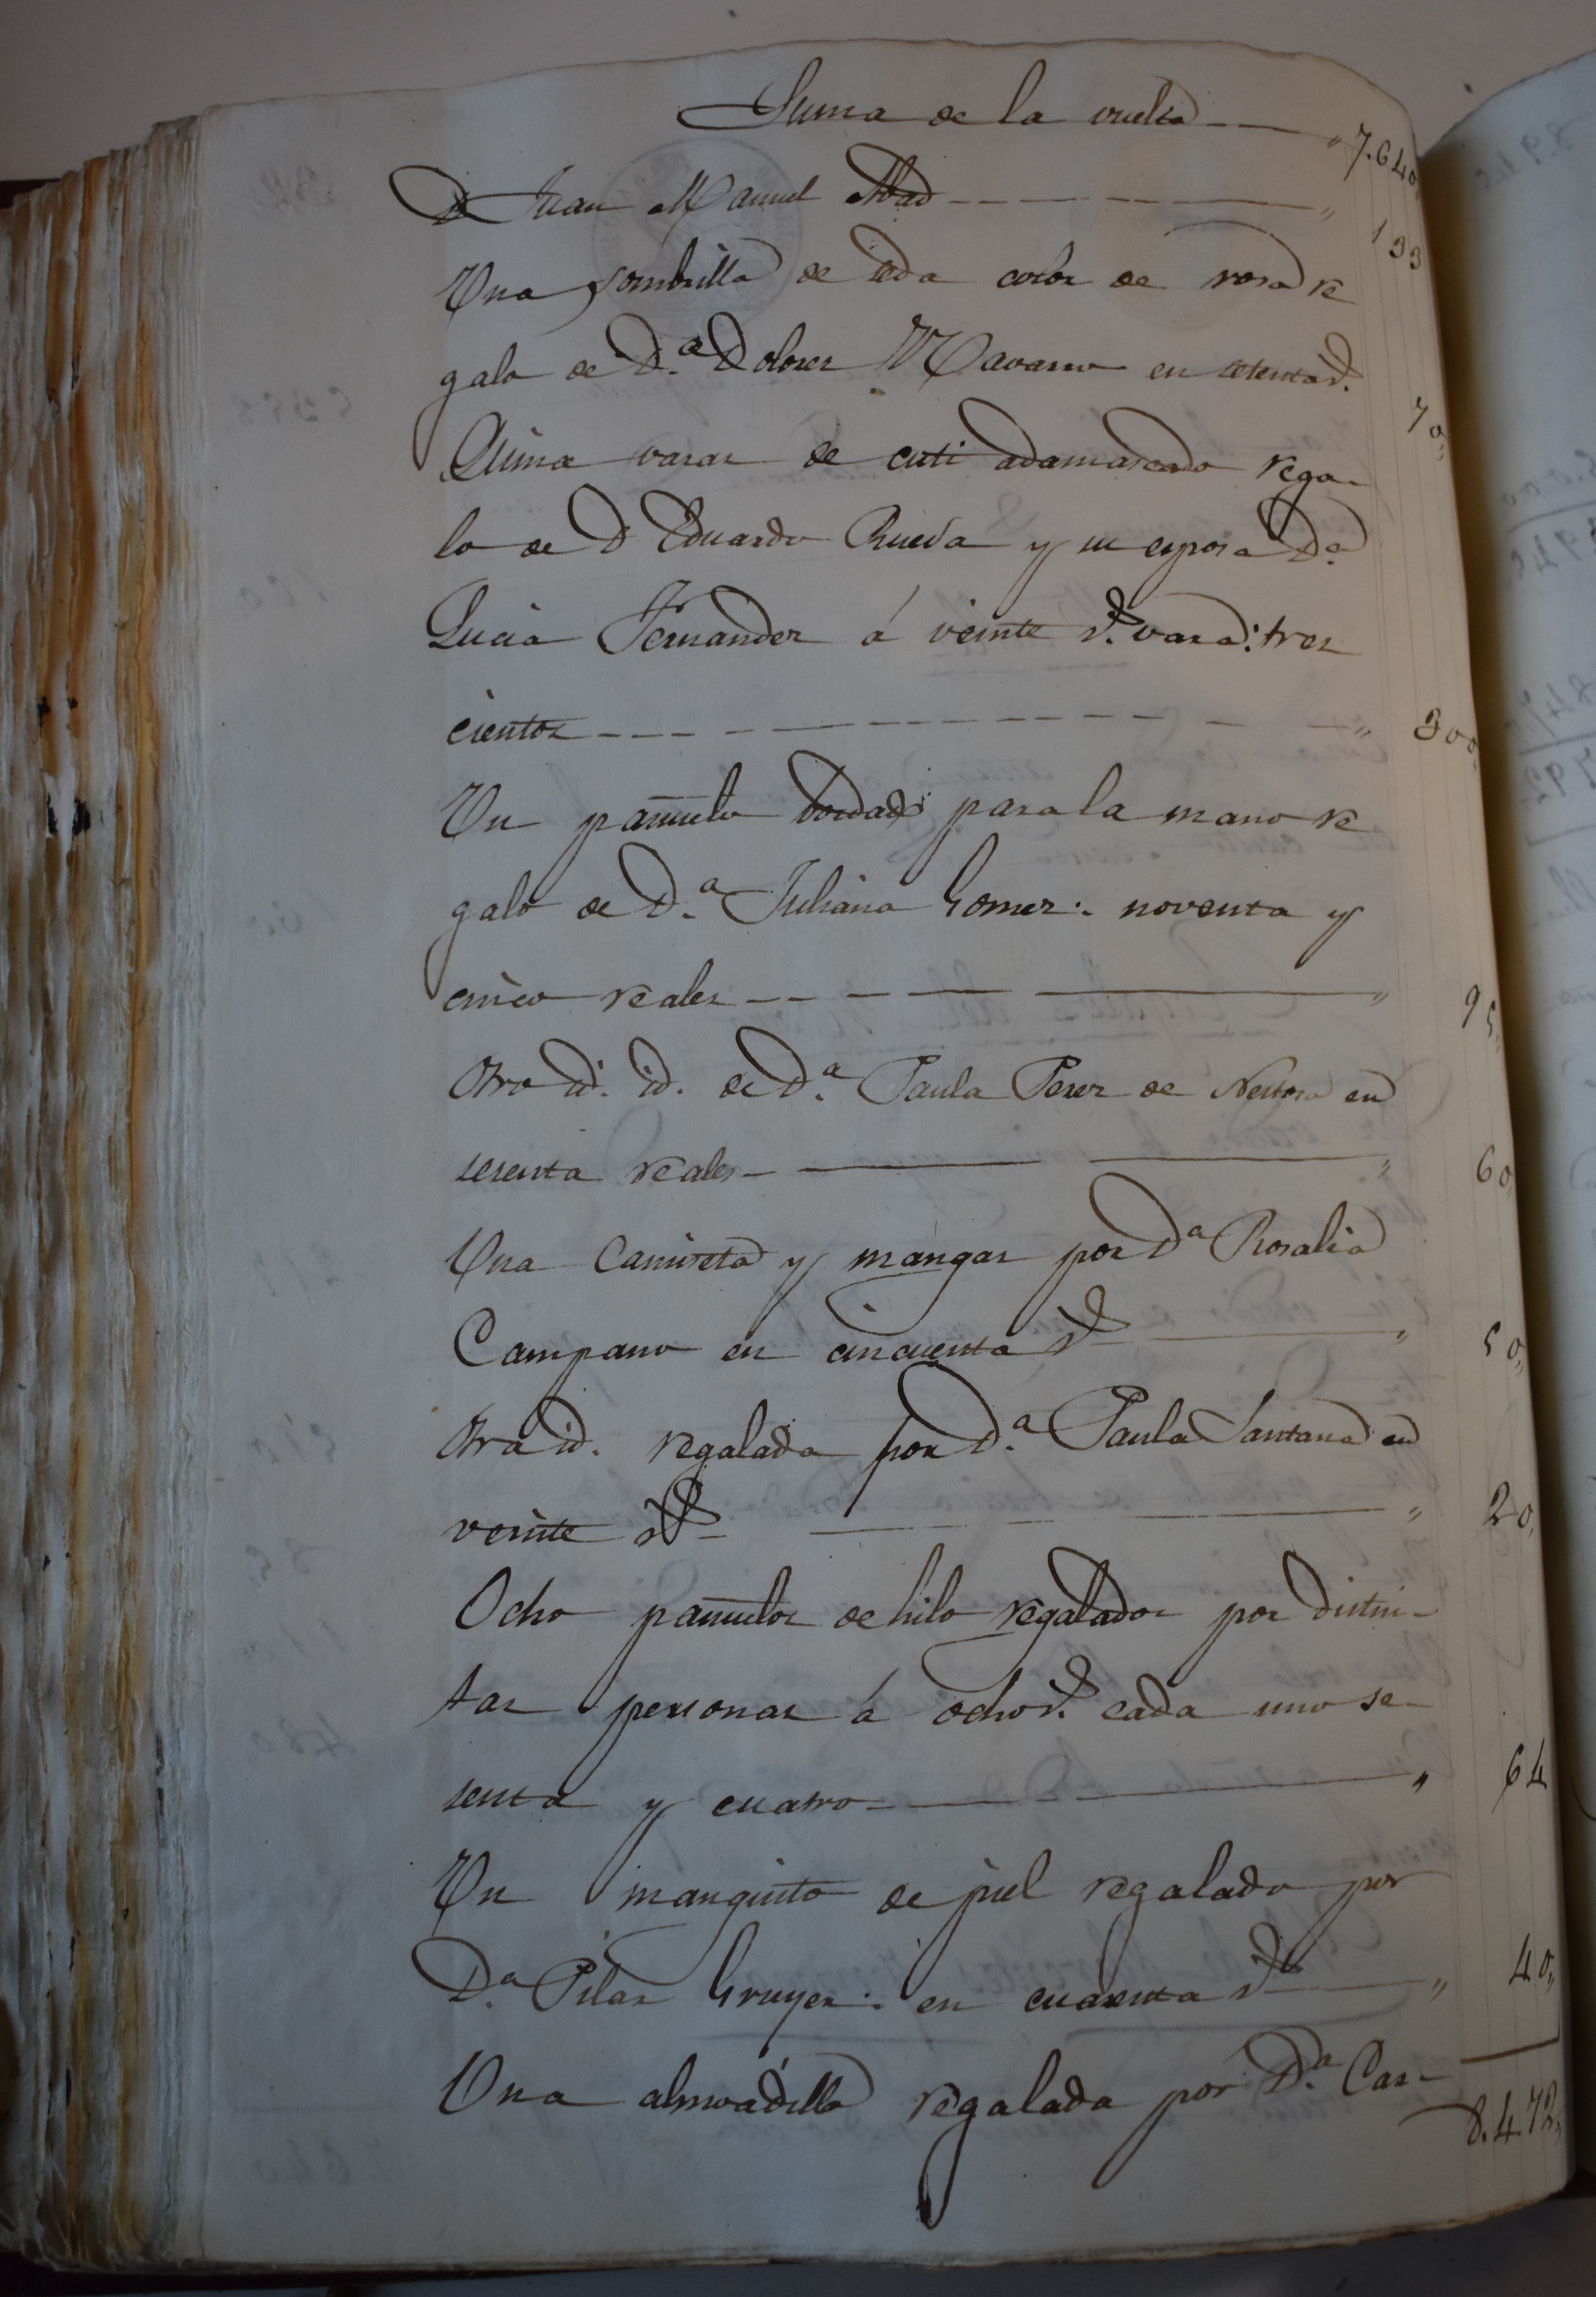 Suma de la vuelta " 7.640
D Juan Manuel Abad " 133
Una sombrilla de seda color de rosa re
galo de D.ª Dolores Navarro en setenta r.^s 70"
Quince varas de cuti adamascado rega-
lo de D Eduardo Rueda y su esposa D.ª
Lucia Fernandez á veinte r.^s vara: tres
cientos " 300"
Un pañuelo bordado para la mano re
galo de D.ª Juliana Gomez: noventa y
cinco reales " 95"
Otro id. id. de D.ª Paula Perez de en
sesenta reales " 60"
Una Camiseta y mangas por D.ª Rosalia
Campano en cincuenta r.^s " 50"
Otra id. regalada por D.ª Paula Santana en
veinte r.^s " 20"
Ocho pañuelos de hilo regalados por distin-
tas personas á ocho r.^s cada uno se-
senta y cuatro " 64
Un manguito de piel regalado por
D.ª Pilar Gruyer: en cuarenta r.^s " 40"
Una almoadilla regalada por D.ª Car-
8.472"